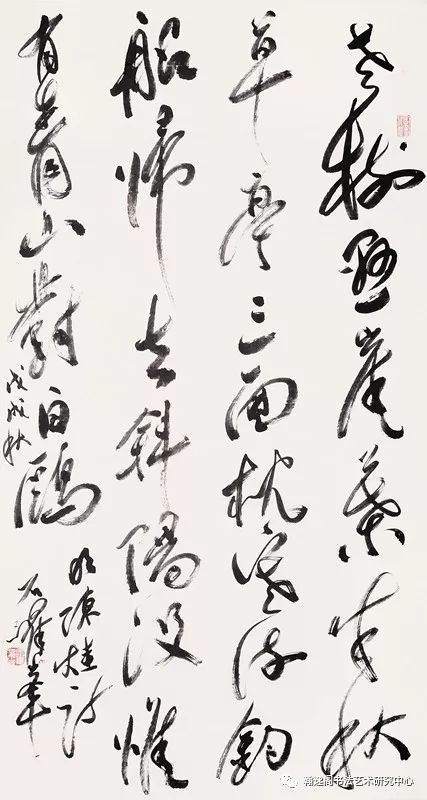 老樹懸崖葉半秋
草亭三面枕寒流釣
船歸去斜陽没惟
有青山對白鷗
戊戌秋
明陳 詩
瀚逸阁书法艺术研究中心